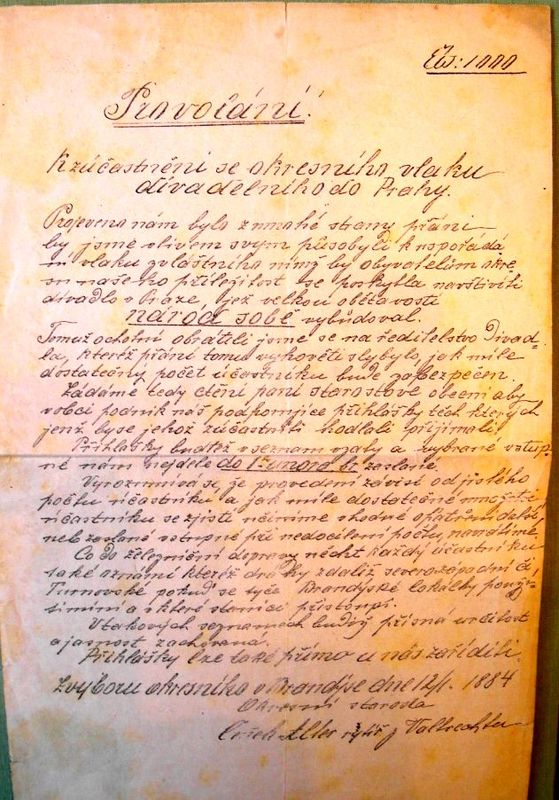 Čís: 1000
Provolání!
K zúčastnění se okresního vlaku
divadelního do Prahy.
Projeveno nám bylo z mnohé strany přání
by jsme vlivem svým působili k uspořádá
ní vlaku zvláštního nímž by obyvatelům okre
su našeho příležitost se poskytla navštíviti
divadlo v Praze, jež velkou obětavostí
národ sobě vybudoval.
Tomuž ochotni obrátili jsme se na ředitelstvo Divad-
la, kteréž přání tomu vyhověti slíbilo, jak mile
dostatečný počet účastníků bude zabezpečen.
Žádáme tedy ctění páni starostové obecní aby
v obci podnik náš podporujíce přihlášky těch kterých
jenž by se jehož zúčastniti hodlali přijímali.
Přihlášky buďtež v seznam vzaty a vybrané vstup-
né nám nejdéle do 1. února br. zaslané.
Vyrozumívá se, že provedení závisí od jistého
počtu účastníků a jak mile dostatečné množství
účastníků se zjistí učiníme vhodné opatření další,
neb zaslané vstupné při nedocílení počtu, navrátíme.
Co do železniční dopravy nechť každý účastník u
také oznámí kteréž dráhy zdaliž severozápadní či
Turnovské pokud se týče Brandýské lokálky použí-
ti míní a v které stanici přistoupí.
V takových seznamech budiž přísná určitost
a jasnost zachována.
Přihlášky lze také přímo u nás zaříditi.
Z výboru okresního v Brandýse dne 12/1. 1884
Okresní starosta
rytíř z